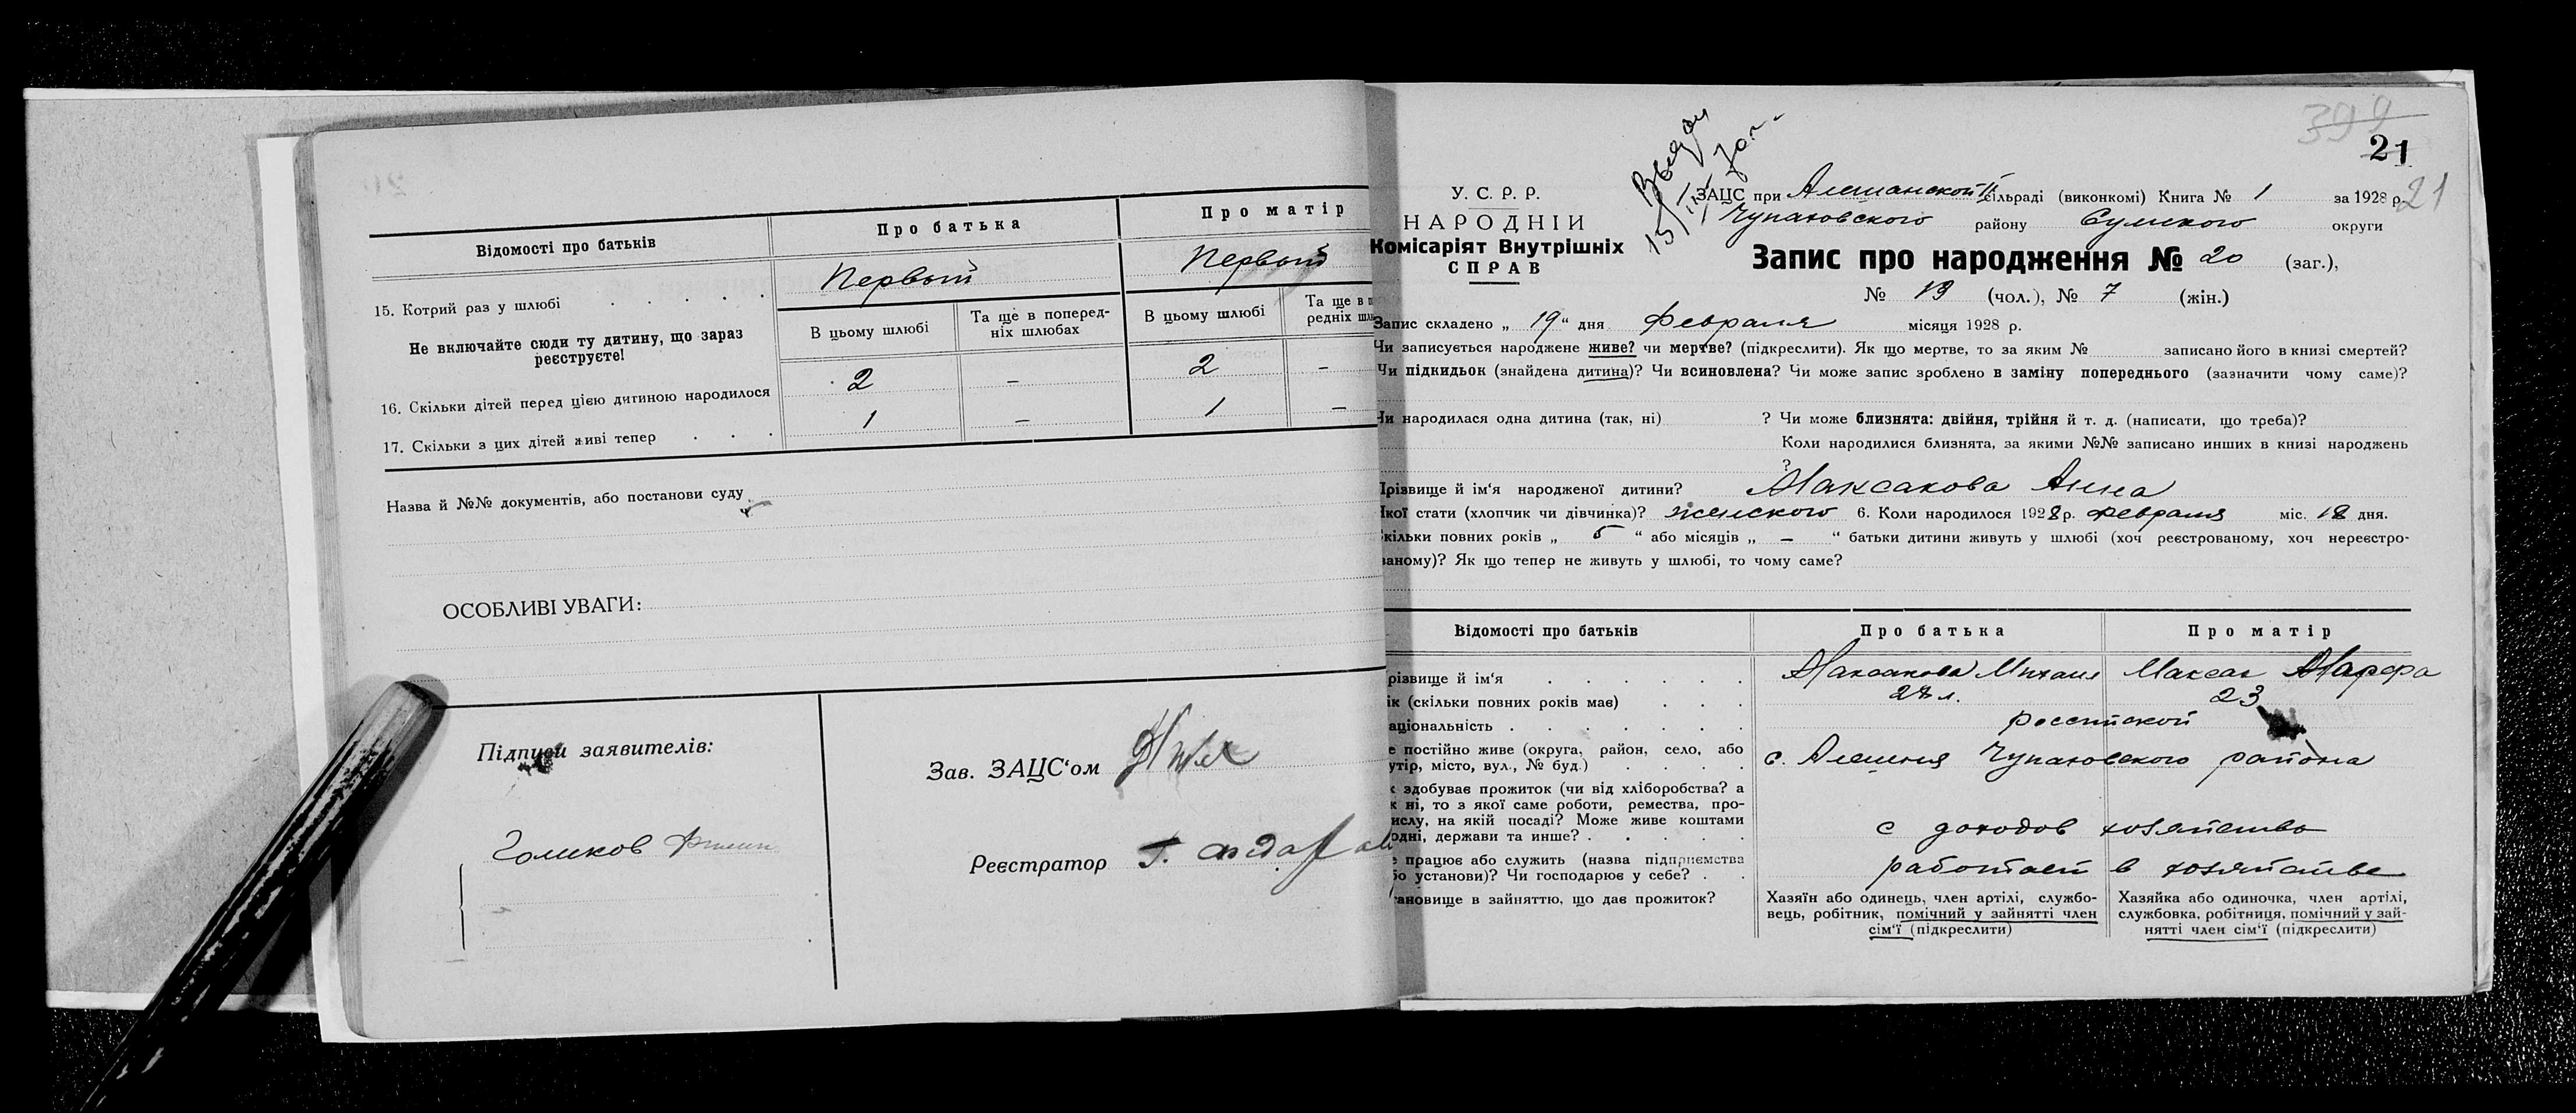 Відомості про батьків
Про батька
Про матір
15. Котрий раз у шлюбі
Первый
Первый
Не включайте сюди ту дитину, що зараз реєструєте!
В цьому шлюбі
Та ще в поперед-
ніх шлюбах
В цьому шлюбі
Та ще в п
редніх шлю
16. Скільки дітей перед цією дитиною народилося
2 — 2 —
17. Скільки з цих дітей живі тепер
1 — 1 —
Назва й №№ документів, або постанови суду
ОСОБЛИВІ УВАГИ:
Підписи заявителів:
Голиков
Зав. ЗАЦС'ом
Реєстратор
399
21
21
15/III 70 г.
У. С. Р. Р.
НАРОДНІЙ
Комісаріят Внутрішніх
СПРАВ
ЗАЦС при Алешанской сільраді (виконкомі) Книга № 1 за 1928 р.
Чупаховского району Сумского округи
Запис про народження № 20 (заг.),
№ 13 (чол.), № 7 (жін.)
Запис складено „ 19 “ дня Февраля місяця 1928 р.
Чи записується народжене живе? чи мертве? (підкреслити). Як що мертве, то за яким № записано його в книзі смертей?
Чи підкидьок (знайдена дитина)? Чи всиновлена? Чи може запис зроблено в заміну попереднього (зазначити чому саме)?
Чи народилася одна дитина (так, ні) ? Чи може близнята: двійня, трійня й т. д. (написати, що треба)?
Коли народилися близнята, за якими №№ записано инших в книзі народжень
?
Прізвище й ім'я народженої дитини? Максакова Анна
Якої стати (хлопчик чи дівчинка)? женского 6. Коли народилося 1928 р. февраля міс. 18 дня.
Скільки повних років „ 5 “ або місяців „ — “ батьки дитини живуть у шлюбі (хоч реєстрованому, хоч нереєстро-
ваному)? Як що тепер не живуть у шлюбі, то чому саме?
Відомості про батьків
Про батька
Про матір
різвище й ім'я
Максакова Михаил
Максак Марфа
ік (скільки повних років має)
23
аціональність
российской
е постійно живе (округа, район, село, або
утір, місто, вул., № буд.)
с. Алешня Чупаховского района
к здобуває прожиток (чи від хліборобства? а
к ні, то з якої саме роботи, ремества, про-
мислу, на якій посаді? Може живе коштами
одні, держави та инше?
с доходов хозяйства
е працює або служить (назва підприємства
бо установи)? Чи господарює у себе?
работает в хозяйстве
тановище в зайняттю, що дає прожиток?
Хазяїн або одинець, член артілі, службо-
вець, робітник, помічний у зайнятті член
сім'ї (підкреслити)
Хазяйка або одиночка, член артілі,
службовка, робітниця, помічний у зай-
нятті член сім'ї (підкреслити)